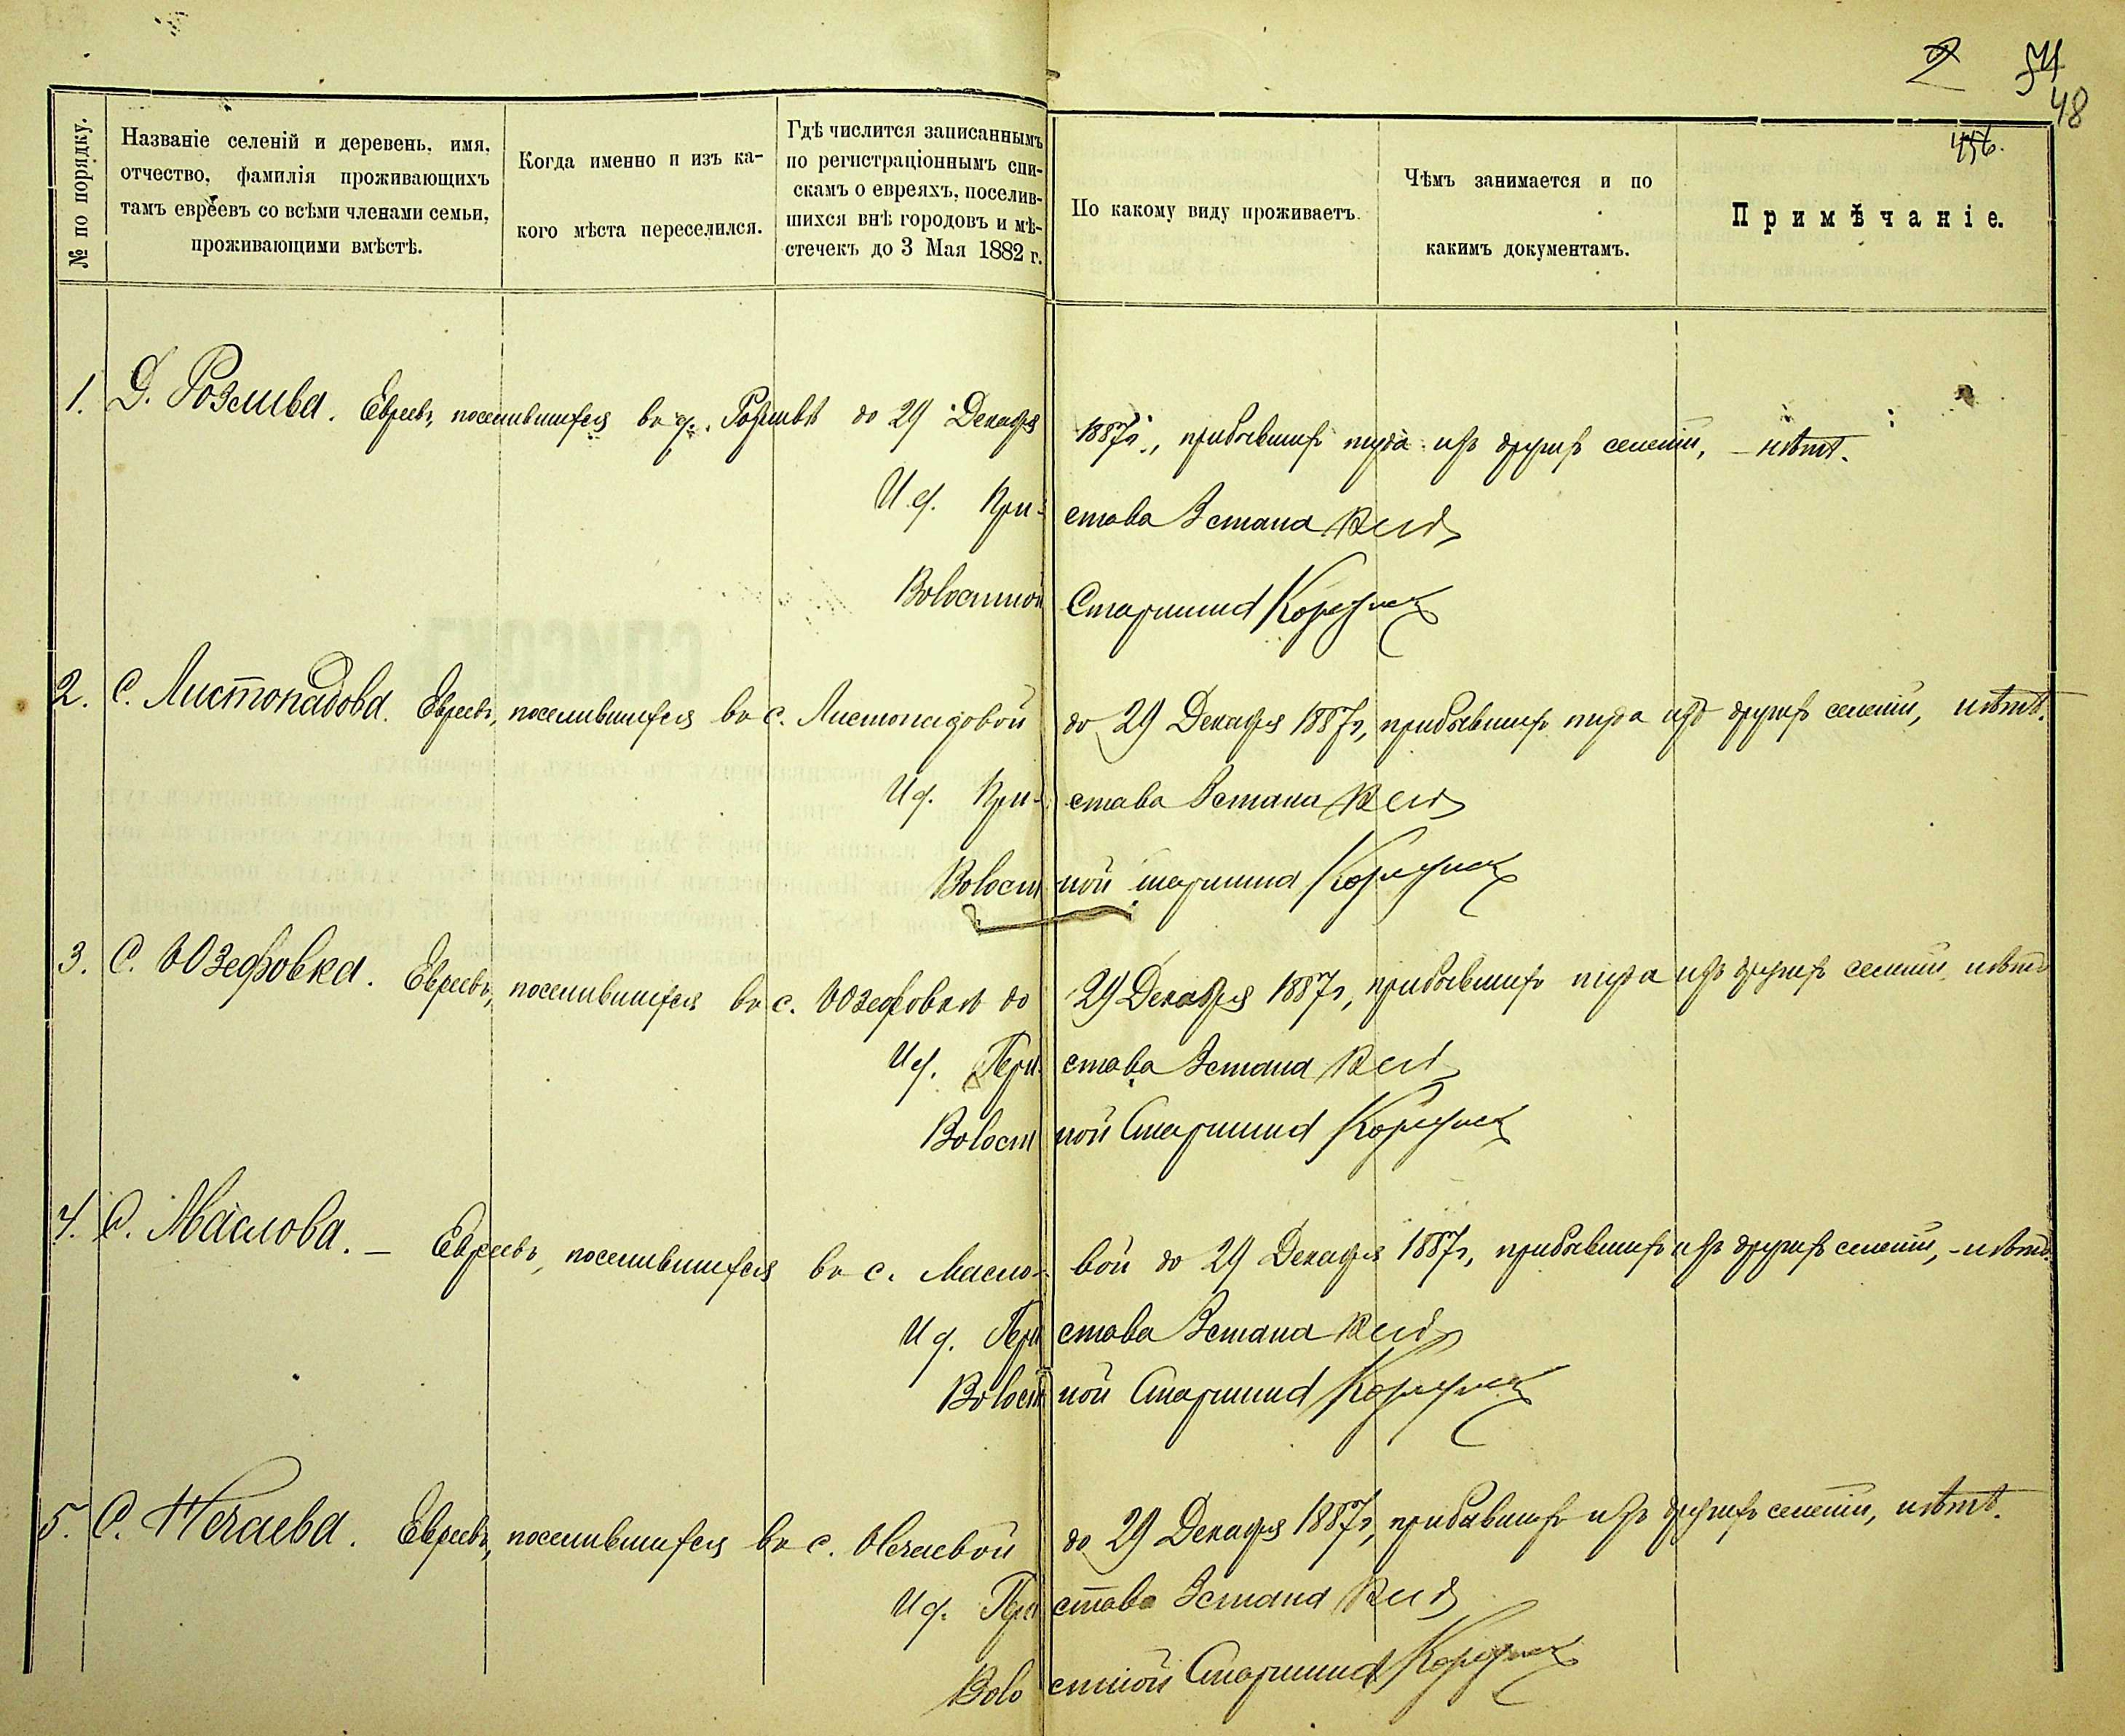 2 54
48
456.
№ по порядку.
Названіе селеній и деревень, имя,
отчество, фамилія проживающихъ
тамъ евреевъ со всѣми членами семьи,
проживающими вмѣстѣ.
Когда именно и изъ ка-
кого мѣста переселился.
Гдѣ числится записаннымъ
по регистраціоннымъ спи-
скамъ о евреяхъ, поселив-
шихся внѣ городовъ и мѣ-
стечекъ до 3 Мая 1882 г.
По какому виду проживаетъ.
Чѣмъ занимается и по
какимъ документамъ.
Примѣчаніе.
1. Д. Розлива. Евреевъ, поселившихся въ д. Розливѣ до 29 Декабря 1887 г., прибывшихъ туда изъ другихъ селеній, – нѣтъ.
И. д. Пристава 3 стана
Волостной Старшина
2. С. Листопадова. Евреевъ, поселившихся въ с. Листопадовой до 29 Декабря 1887 г., прибывшихъ туда изъ другихъ селеній, нѣтъ.
И. д. Пристава 3 стана
Волостной старшина
3. С. Юзефовка. Евреевъ, поселившихся въ с. Юзефовкѣ до 29 Декабря 1887 г., прибывшихъ туда изъ другихъ селеній, нѣтъ
И. д. Пристава 3 стана
Волостной Старшина
4. С. Маслова. – Евреевъ, поселившихся въ с. Масло-вой до 29 Декабря 1887 г., прибывшихъ изъ другихъ селеній, – нѣтъ.
И. д. Пристава 3 стана
Волостной Старшина
5. С. Нечаева. Евреевъ, поселившихся въ с. Нечаевой до 29 Декабря 1887 г., прибывшихъ изъ другихъ селеній, нѣтъ.
И. д. Пристава 3 стана
Волостной Старшина